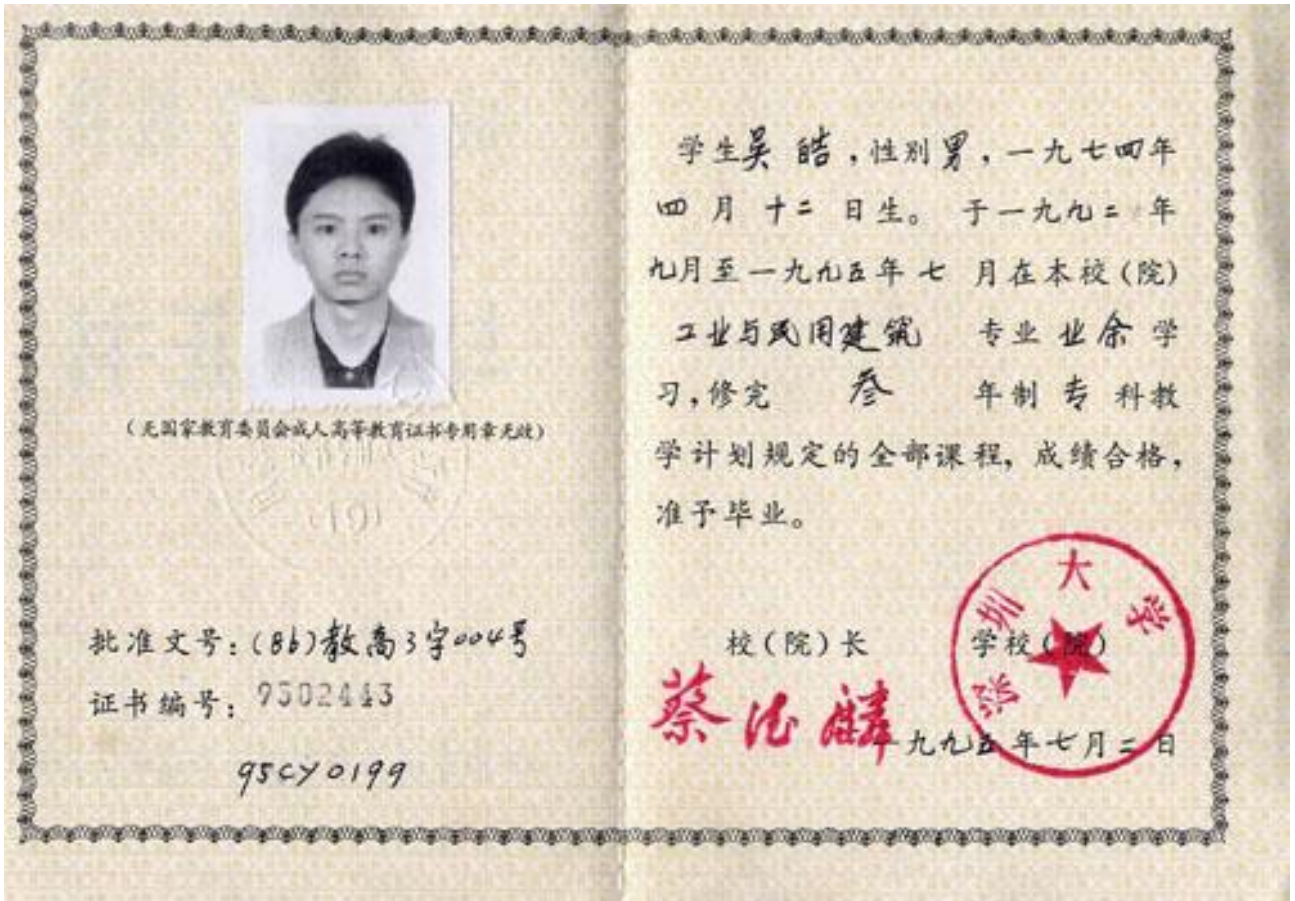 (无国家教育委员会成人高等教育证书专用章无效)
批准文号:(86)教高3字004号
证书编号:9502443
95CY0199
学生吴皓,性别男,一九七四年
四月十二日生。于一九九二年
九月至一九九五年七月在本校(院)
工业与民用建筑 专业业余学
习,修完 叁 年制专科教
学计划规定的全部课程,成绩合格,
准予毕业。
校(院)长 学校(院)
蔡德麟
深圳大学
一九九五年七月二日